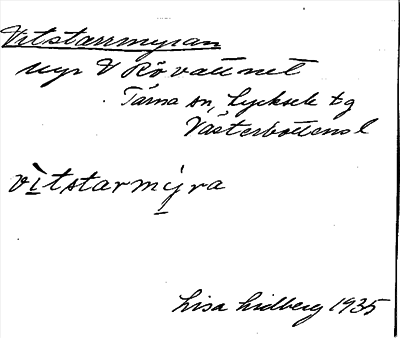 Vitstarrmyran
myr V Rövattnet
Tärna sn, Lycksele tg
Västerbottens l
vìtstarmýra
Lisa Lidberg 1935